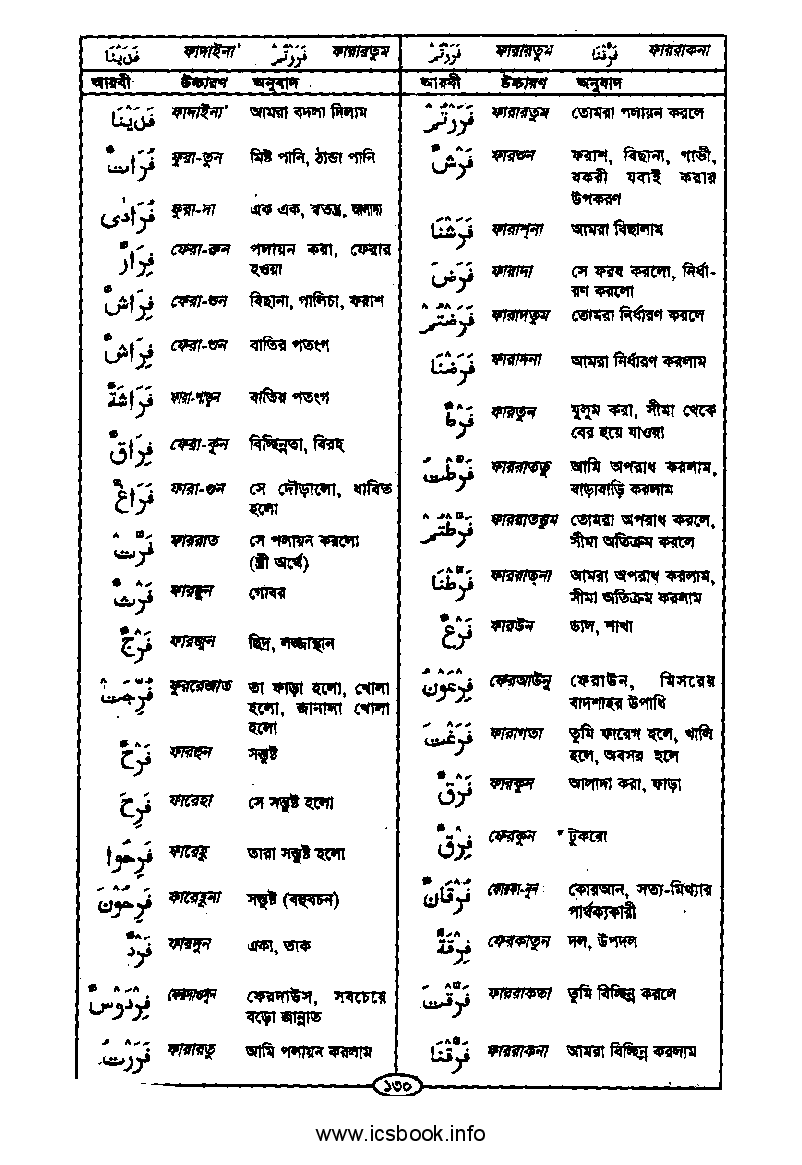 فَدَيْنَا ফাদাইনা' فَرَرْتُمْ ফারারতুম
আরবী উচ্চারণ অনুবাদ
فَدَيْنَا ফাদাইনা' আমরা বদলা দিলাম
فُرَاتٌ ফুরা-তুন মিষ্ট পানি, ঠান্ডা পানি
فُرَادٰى ফুরা-দা এক এক, স্বতন্ত্র, আলাদা
فِرَارٌ ফেরা-রুন পলায়ন করা, ফেরার
হওয়া
فِرَاشٌ ফেরা-শুন বিছানা, গালিচা, ফরাশ
فِرَاشٌ ফেরা-শুন বাতির পতংগ
فَرَاشَةٌ ফারা-শাতুন বাতির পতংগ
فِرَاقٌ ফেরা-কুন বিচ্ছিন্নতা, বিরহ
فَرَاغٌ ফারা-গুন সে দৌড়ালো, ধাবিত
হলো
فَرَّتْ ফাররাত সে পলায়ন করলো
(স্ত্রী অর্থে)
فَرْثٌ ফারছুন গোবর
فَرْجٌ ফারজুন ছিদ্র, লজ্জাস্থান
فُرِّجَتْ ফুররেজাত তা ফাড়া হলো, খোলা
হলো, জানালা খোলা
হলো
فَرْحٌ ফারহুন সন্তুষ্ট
فَرِحَ ফারেহা সে সন্তুষ্ট হলো
فَرِحُوا ফারেহু তারা সন্তুষ্ট হলো
فَرِحُوْنَ ফারেহুনা সন্তুষ্ট (বহুবচন)
فَرْدٌ ফারদুন একা, তাক
فِرْدَوْسٌ ফেরদাওসুন ফেরদাউস, সবচেয়ে
বড়ো জান্নাত
فَرَرْتُ ফারারতু আমি পলায়ন করলাম
فَرَرْتُمْ ফারারতুম فَرَّقْنَا ফাররাকনা
আরবী উচ্চারণ অনুবাদ
فَرَرْتُمْ ফারারতুম তোমরা পলায়ন করলে
فَرْشٌ ফারশুন ফরাশ, বিছানা, গাভী,
বকরী যবাই করার
উপকরণ
فَرَشْنَا ফারাশ্না আমরা বিছালাম
فَرَضَ ফারাদা সে ফরয করলো, নির্ধা-
রণ করলো
فَرَضْتُمْ ফারাদতুম তোমরা নির্ধারণ করলে
فَرَضْنَا ফারাদনা আমরা নির্ধারণ করলাম
فَرْطًا ফারতুন যুলুম করা, সীমা থেকে
বের হয়ে যাওয়া
فَرَّطْتُ ফাররাততু আমি অপরাধ করলাম,
বাড়াবাড়ি করলাম
فَرَّطْتُمْ ফাররাততুম তোমরা অপরাধ করলে,
সীমা অতিক্রম করলে
فَرَّطْنَا ফাররাত্না আমরা অপরাধ করলাম,
সীমা অতিক্রম করলাম
فَرْعٌ ফারউন ডাল, শাখা
فِرْعَوْنُ ফেরআউনু ফেরাউন, মিসরের
বাদশাহর উপাধি
فَرَغْتَ ফারাগতা তুমি ফারেগ হলে, খালি
হলে, অবসর হলে
فَرْقٌ ফারকুন আলাদা করা, ফাড়া
فِرْقٌ ফেরকুন টুকরো
فُرْقَانٌ ফোরকা-নুন কোরআন, সত্য-মিথ্যার
পার্থক্যকারী
فِرْقَةٌ ফেরকাতুন দল, উপদল
فَرَّقْتَ ফাররাকতা তুমি বিচ্ছিন্ন করলে
فَرَّقْنَا ফাররাকনা আমরা বিচ্ছিন্ন করলাম
১৩০
www.icsbook.info